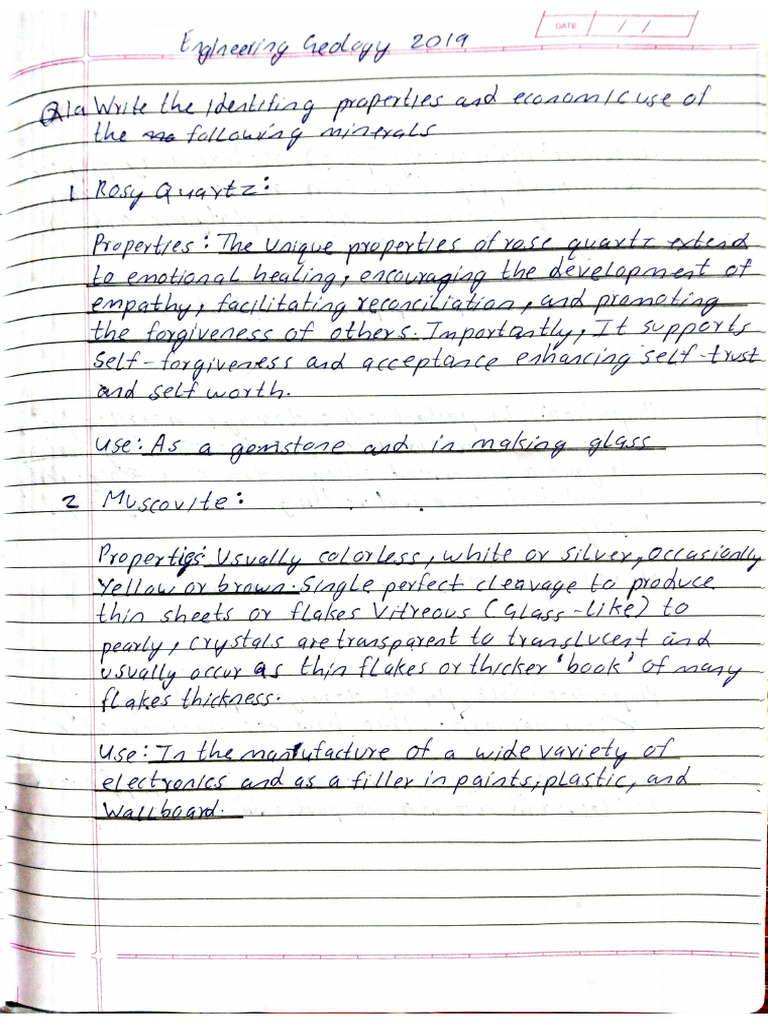 DATE / /
Engineering Geology 2019
Q1a Write the Identifing properties and economic use of
the following minerals
1 Rosy Quartz:
Properties: The unique properties of rose quartz extend
to emotional healing, encouraging the development of
empathy, facilitating reconciliation, and promoting
the forgiveness of others. Importantly, It supports
self-forgiveness and acceptance enhancing self-trust
and self worth.
Use: As a gemstone and in making glass
2 Muscovite:
Properties: Usually colorless, white or silver, occasionlly
Yellow or brown. Single perfect cleavage to produce
thin sheets or flakes Vitreous (Glass-like) to
pearly, crystals are transparent to translucent and
usually occur as thin flakes or thicker 'book' of many
flakes thickness.
Use: In the manufacture of a wide variety of
electronics and as a filler in paints, plastic, and
Wallboard.